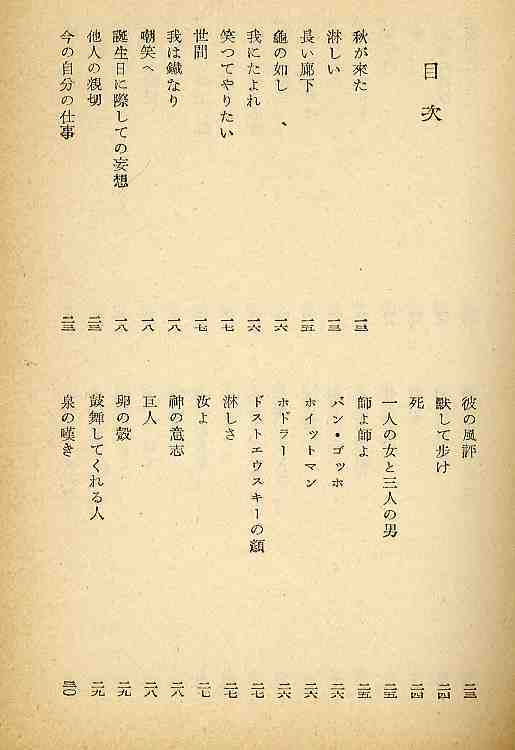 目次
秋が來た 一三
淋しい 一三
長い廊下 一五
龜の如し 一六
我にたよれ 一六
笑つてやりたい 一七
世間 一七
我は鐵なり 一八
嘲笑へ 一八
誕生日に際しての妄想 一八
他人の親切 二三
今の自分の仕事 二三
彼の風評 二三
默して歩け 二四
死 二四
一人の女と三人の男 二五
師よ師よ 二五
バン・ゴッホ 二六
ホイットマン 二六
ホドラー 二六
ドストエウスキーの顏 二七
淋しさ 二七
汝よ 二七
神の意志 二八
巨人 二八
卵の殼 二九
鼓舞してくれる人 二九
泉の嘆き 三〇